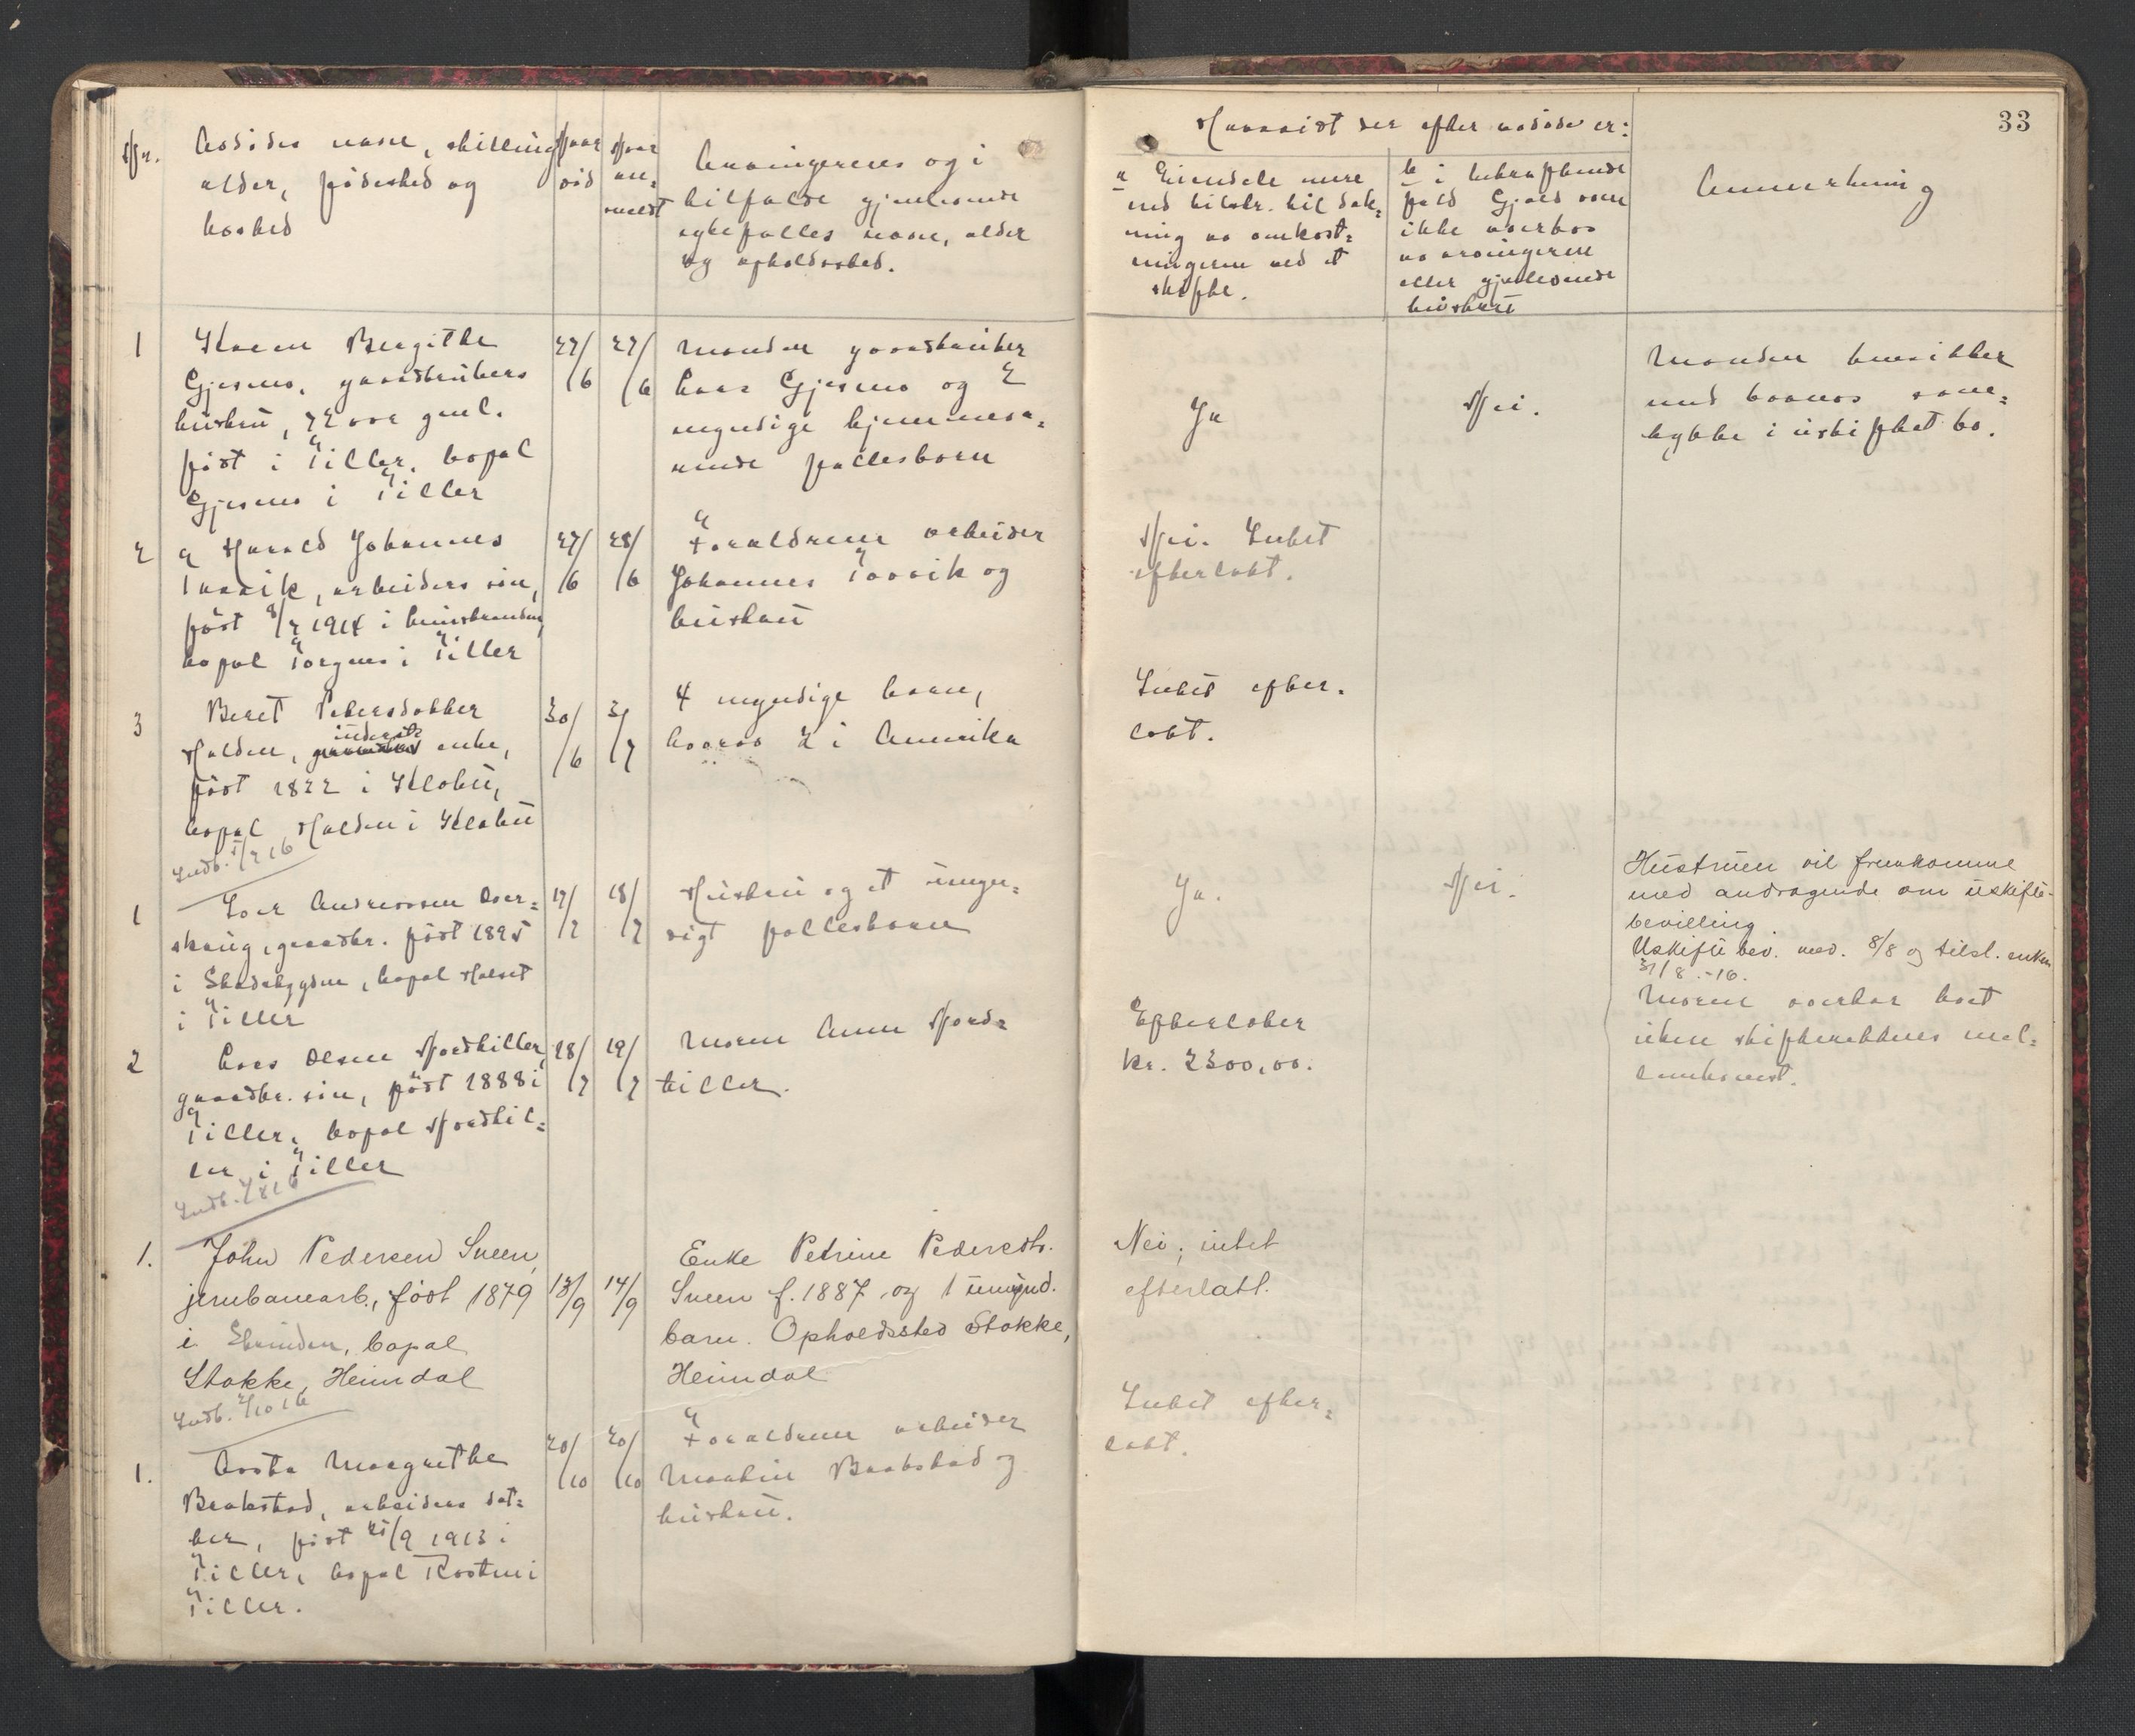 33
Nr.
Avdødes navn, stilling
alder, fødested og
bosted
Naar
død
Naar
an-
meldt
Arvingernes og i
tilfælde gjenlevende
egtefælles navn, alder
og opholdssted.
Hvorvidt der efter avdøde er:
a Eiendele mere
end tilstr. til dæk-
ning av omkost-
ningerne ved et
skifte.
b i bekræftende
fald Gjæld som
ikke overtas
av arvingerne
eller gjenlevende
hustru
Anmerkning
1
Karen Bergitte
Gjesmo, gaardbrukers
hustru, 72 aar gml.
født i Tiller, bopæl
Gjesmo i Tiller
27/6
27/6
Manden gaardbruker
Lars Gjesmo og 2
myndige hjemmevæ-
rende fællesbarn
Ja
Nei.
Manden besidder
med barnas sam-
tykke i uskiftet bo.
2
Harald Johannes
Tusvik, arbeiders søn,
født 8/7 1914 i Buvikranden,
bopæl Torgaas i Tiller
27/6
28/6
Forældrene arbeider
Johannes Tusvik og
hustru
Nei. Intet
efterladt.
3
Beret Petersdatter
Halden, inderst enke,
født 1822 i Klæbu,
bopæl Halden i Klæbu
30/6
3/7
4 myndige barn,
hvorav 2 i Amerika
Intet efter-
ladt.
Indb. 1/7 16
1
Ivar Andreassen Aver-
skaug, gaardbr. født 1895
i Stadsbygden, bopæl Halset
i Tiller
17/7
18/7
Hustru og et umyn-
digt fællesbarn
Ja.
Nei.
Hustruen vil fremkomme
med andragende om uskifte-
bevilling.
Uskifte bev. med. 8/8 og tilst. enken
31/8.-16.
2
Lars Olsen Nordtiller,
gaardbr. søn, født 1888 i
Tiller, bopæl Nordtil-
ler i Tiller
18/7
19/7
Moren Anne Nord-
tiller.
Efterlater
kr. 2300,00.
Moren overtar boet
uten skifterettens mel-
lemkomst.
Indb. 1/8 16
1.
John Pedersen Sneen,
jernbanearb., født 1879
i Strinden, bopæl
Stokke, Heimdal
13/9
14/9
Enke Petrine Pedersdt.
Sneen f. 1887 og 1 umynd.
barn. Opholdssted Stokke,
Heimdal
Nei; intet
efterlatt.
Indb. 2/10 16
1.
Aasta Margrethe
Brakstad, arbeiders dat-
ter, født 25/9 1913 i
Tiller, bopæl Rosten i
Tiller.
20/10
20/10
Forældrene arbeider
Martin Brakstad og
hustru.
Intet efter-
ladt.